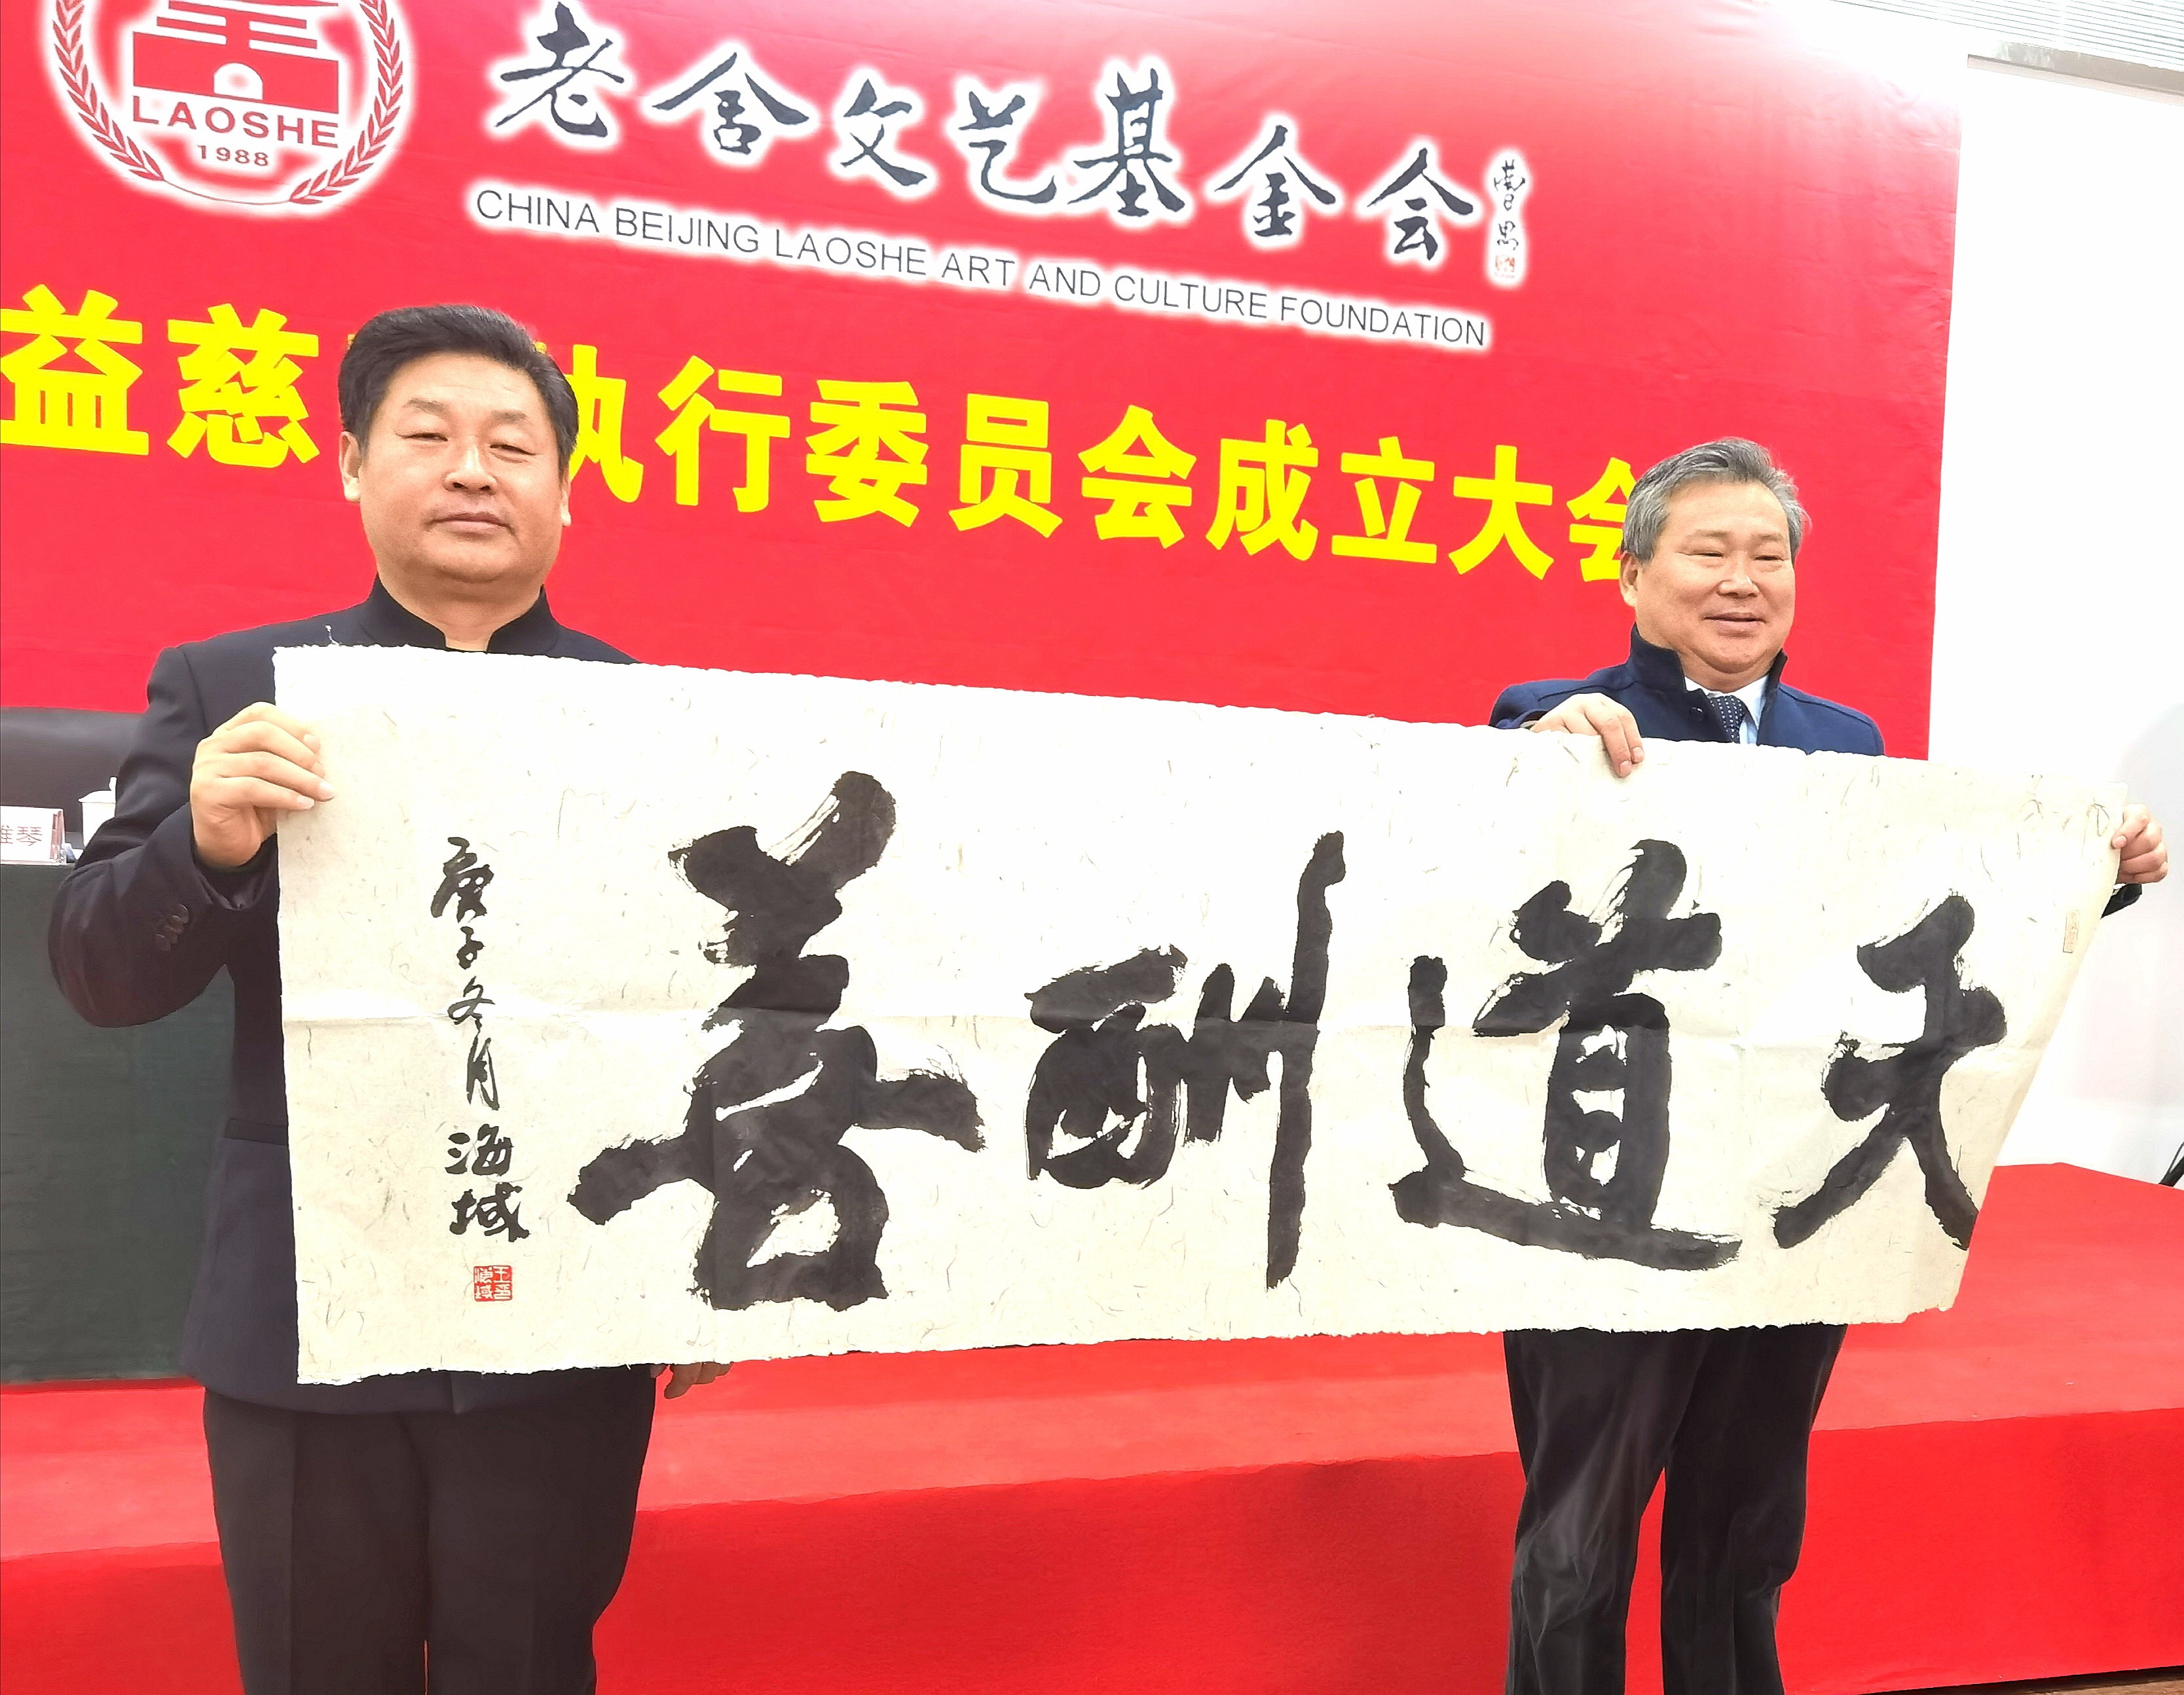 LAOSHE
1988
老舍文艺基金会
CHINA BEIJING LAOSHE ART AND CULTURE FOUNDATION
益慈 执行委员会成立大会
琴
天道酬善
庚子冬月海域